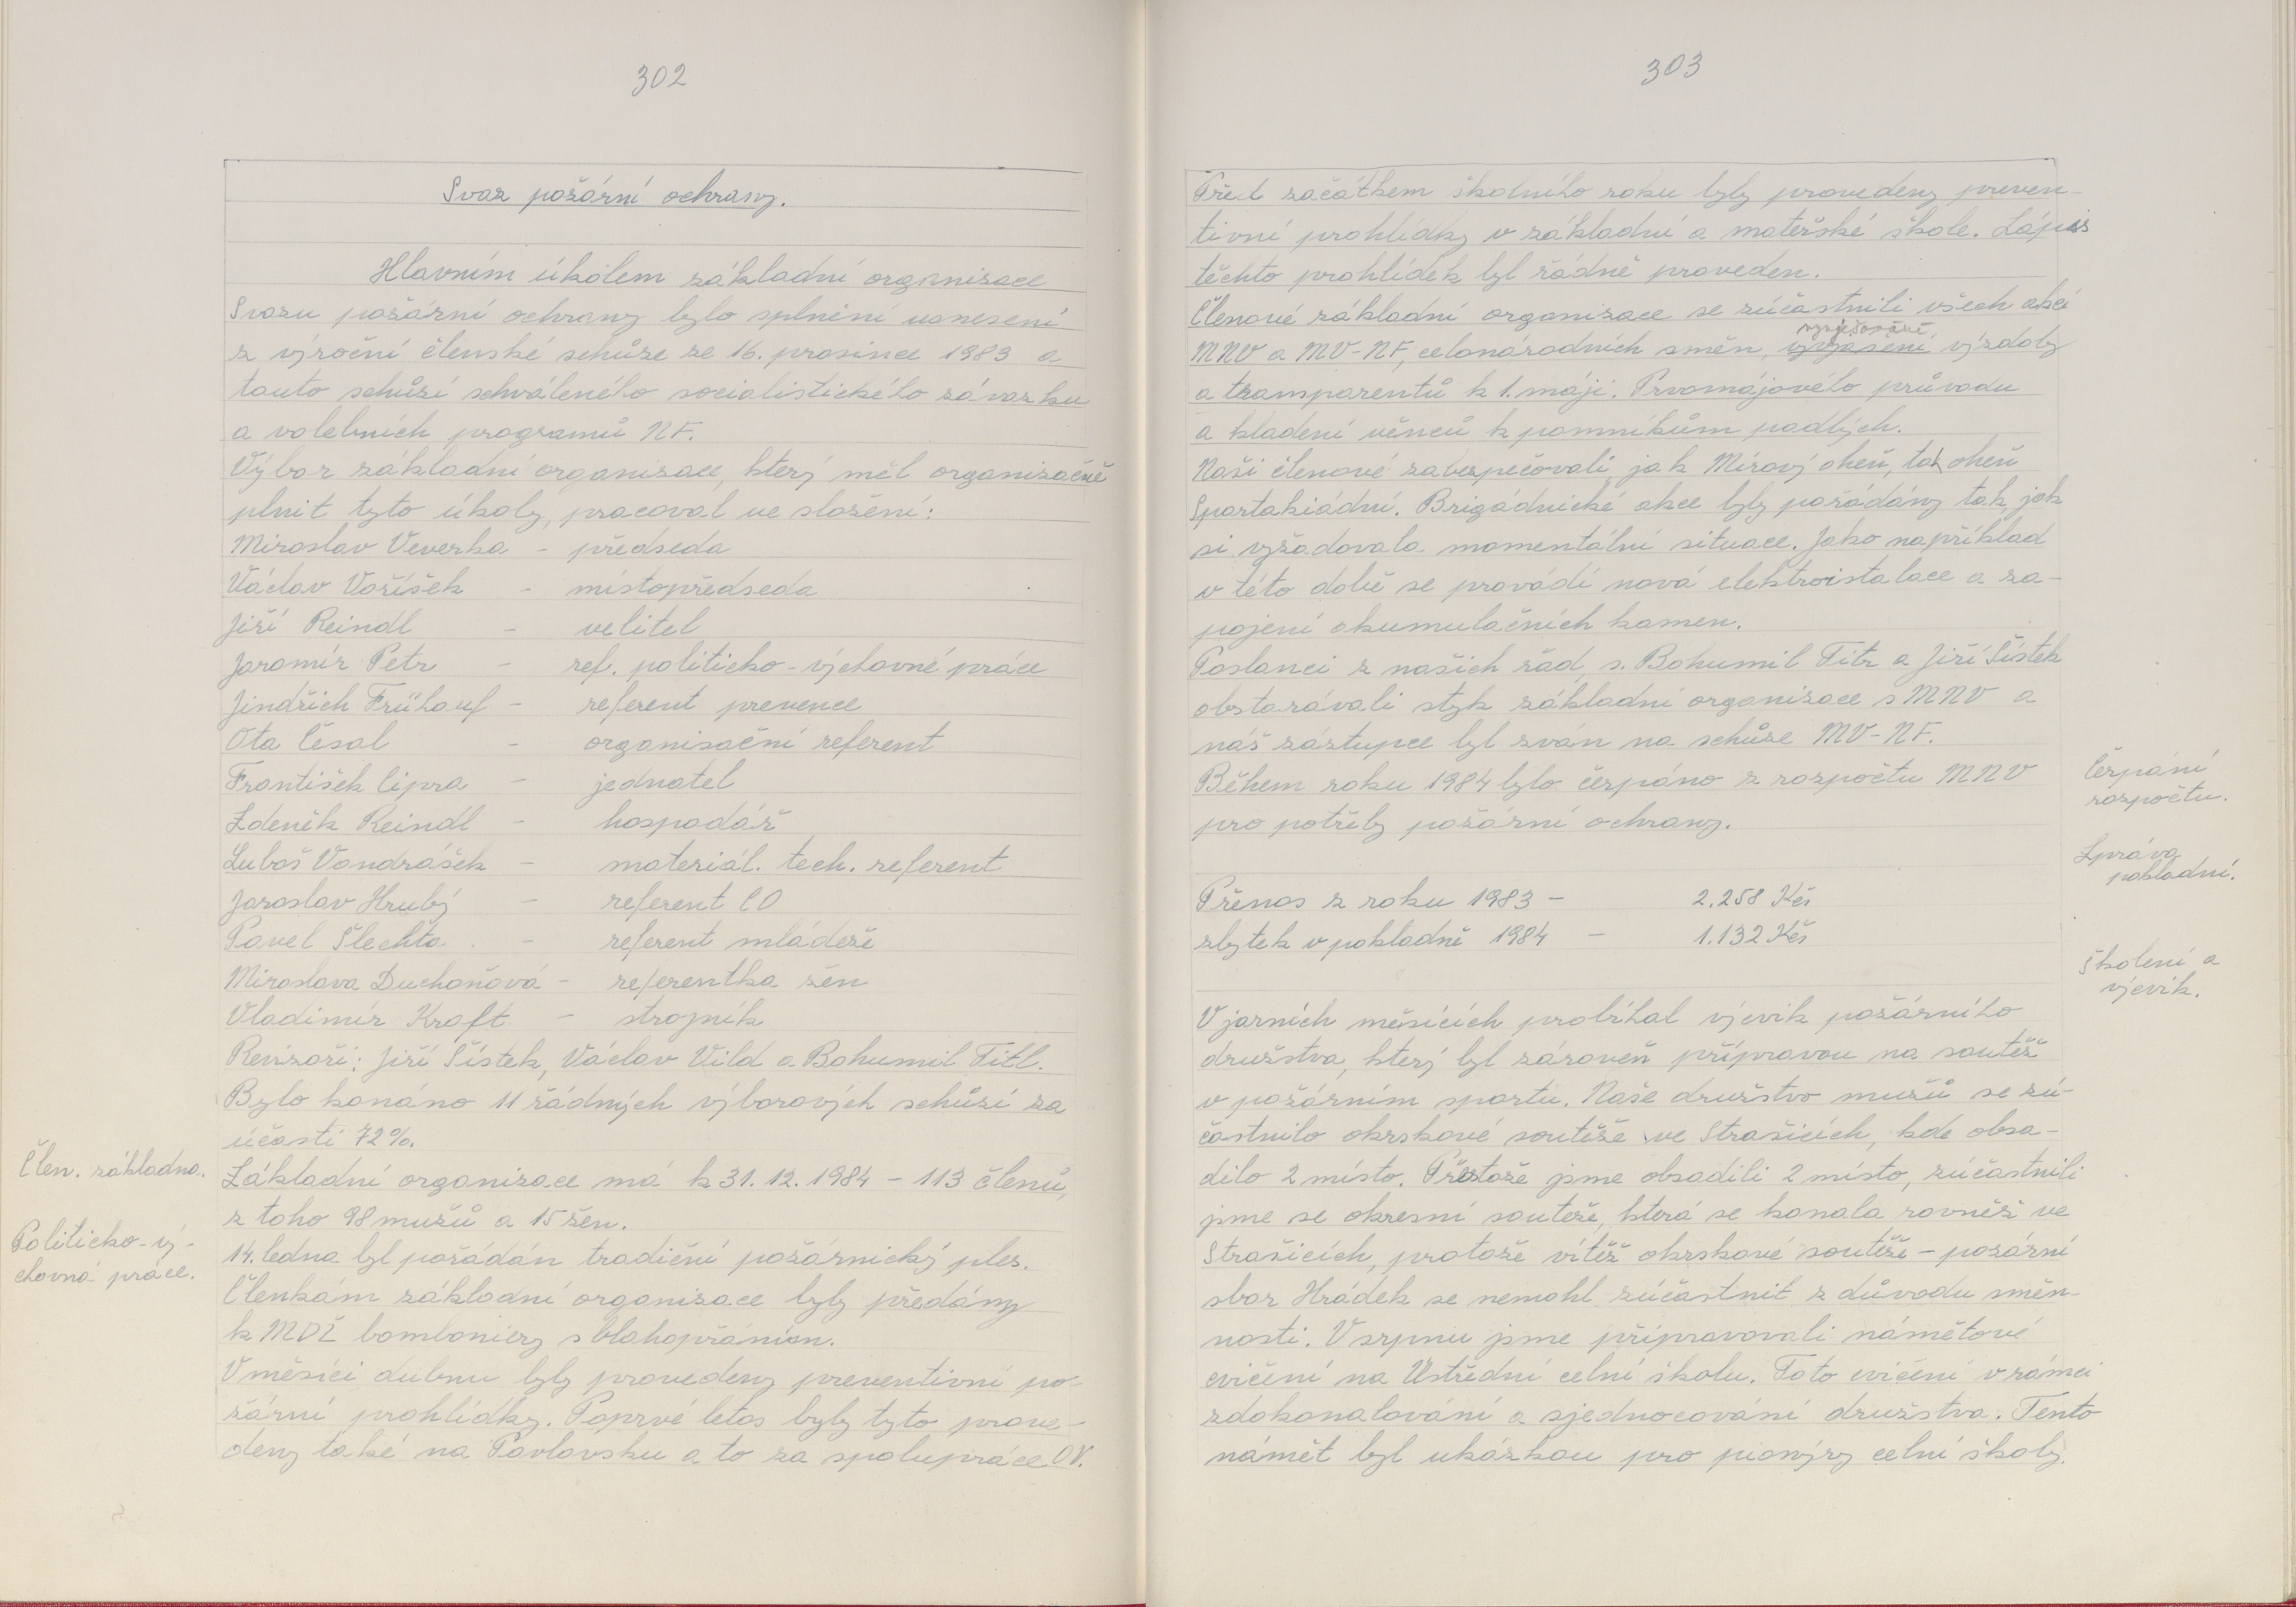 302
Svaz požární ochrany.
Hlavním úkolem základní organisace
Svazu požární ochrany bylo splnění usnesení
z výroční členské schůze ze 16. prosince 1983 a
touto schůzí schváleného socialistického závazku
a volebních programů NF.
Výbor základní organisace, který měl organisačně
plnit tyto úkoly, pracoval ve složení:
Miroslav Veverka - předseda
Václav Voříšek - místopředseda
Jiří Reindl - velitel
Jaromír Petr - ref. politicko-výchovné práce
Jindřich Frühauf - referent prevence
Ota Césal - organisační referent
František Cipra - jednatel
Zdeněk Reindl - hospodář
Luboš Vondrášek - materiál. tech. referent
Jaroslav Hrubý - referent CO
Pavel Šlechta - referent mládeže
Miroslava Duchoňová - referentka žen
Vladimír Kraft - strojník
Revizoři: Jiří Šístek, Václav Vild a Bohumil Titl.
Bylo konáno 11 řádných výborových schůzí za
účasti 72%.
Člen. základna.
Základní organizace má k 31. 12. 1984 - 113 členů,
z toho 98 mužů a 15 žen.
Politicko-vý-
chovná práce.
14. ledna byl pořádán tradiční požárnický ples.
Členkám základní organizace byly předány
k MDŽ bomboniery s blahopřáním.
V měsíci dubnu byly provedeny preventivní po-
žární prohlídky. Poprvé letos byly tyto prove-
deny také na Pavlovsku a to za spolupráce OV.
303
Před začátkem školního roku byly provedeny preven-
tivní prohlídky v základní a mateřské škole. Zápis
těchto prohlídek byl řádně proveden.
Členové základní organizace se zúčastnili všech akcí
vyvěšování
MNV a MV-NF, celonárodních směn, výzdoby
a transparentů k 1. máji. Prvomájového průvodu
a kladení věnců k pomníkům padlých.
Naši členové zabezpečovali jak Mírový oheň, tak oheň
Spartakiádní. Brigádnické akce byly pořádány tak, jak
si vyžadovala momentální situace. Jako například
v této době se provádí nová elektroistalace a za-
pojení akumulačních kamen.
Poslanci z našich řad, s. Bohumil Titz a Jiří Šístek
obstarávali styk základní organizace s MNV a
náš zástupce byl zván na schůze MV-NF.
Čerpání
rozpočtu.
Během roku 1984 bylo čerpáno z rozpočtu MNV
pro potřeby požární ochrany.
Zpráva
pokladní.
Přenos z roku 1983 - 2.258 Kčs
zbytek v pokladně 1984 - 1.132 Kčs
Školení a
výcvik.
V jarních měsících probíhal výcvik požárního
družstva, který byl zároveň přípravou na soutěž
v požárním sportu. Naše družstvo mužů se zú-
častnilo okrskové soutěže ve Strašicích, kde obsa-
dilo 2 místo. Přestože jsme obsadili 2 místo, zúčastnili
jsme se okresní soutěže, která se konala rovněž ve
Strašicích, protože vítěz okrskové soutěže - požární
sbor Hrádek se nemohl zúčastnit z důvodu směn-
nosti. V srpnu jsme připravovali námětové
cvičení na Ústřední celní školu. Toto cvičení v rámci
zdokonalování a sjednocování družstva. Tento
námět byl ukázkou pro pionýry celní školy.